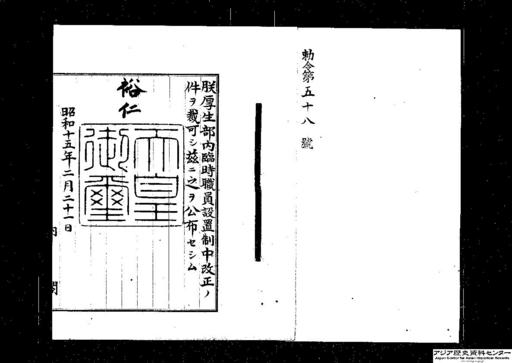 勅令第五十八號
朕厚生部內臨時職員設置制中改正ノ
件ヲ裁可シ茲ニ之ヲ公布セシム
裕仁
天皇
御璽
昭和十五年二月二十一日
内閣
アジア歴史資料センター
Japan Center for Asian Historical Records